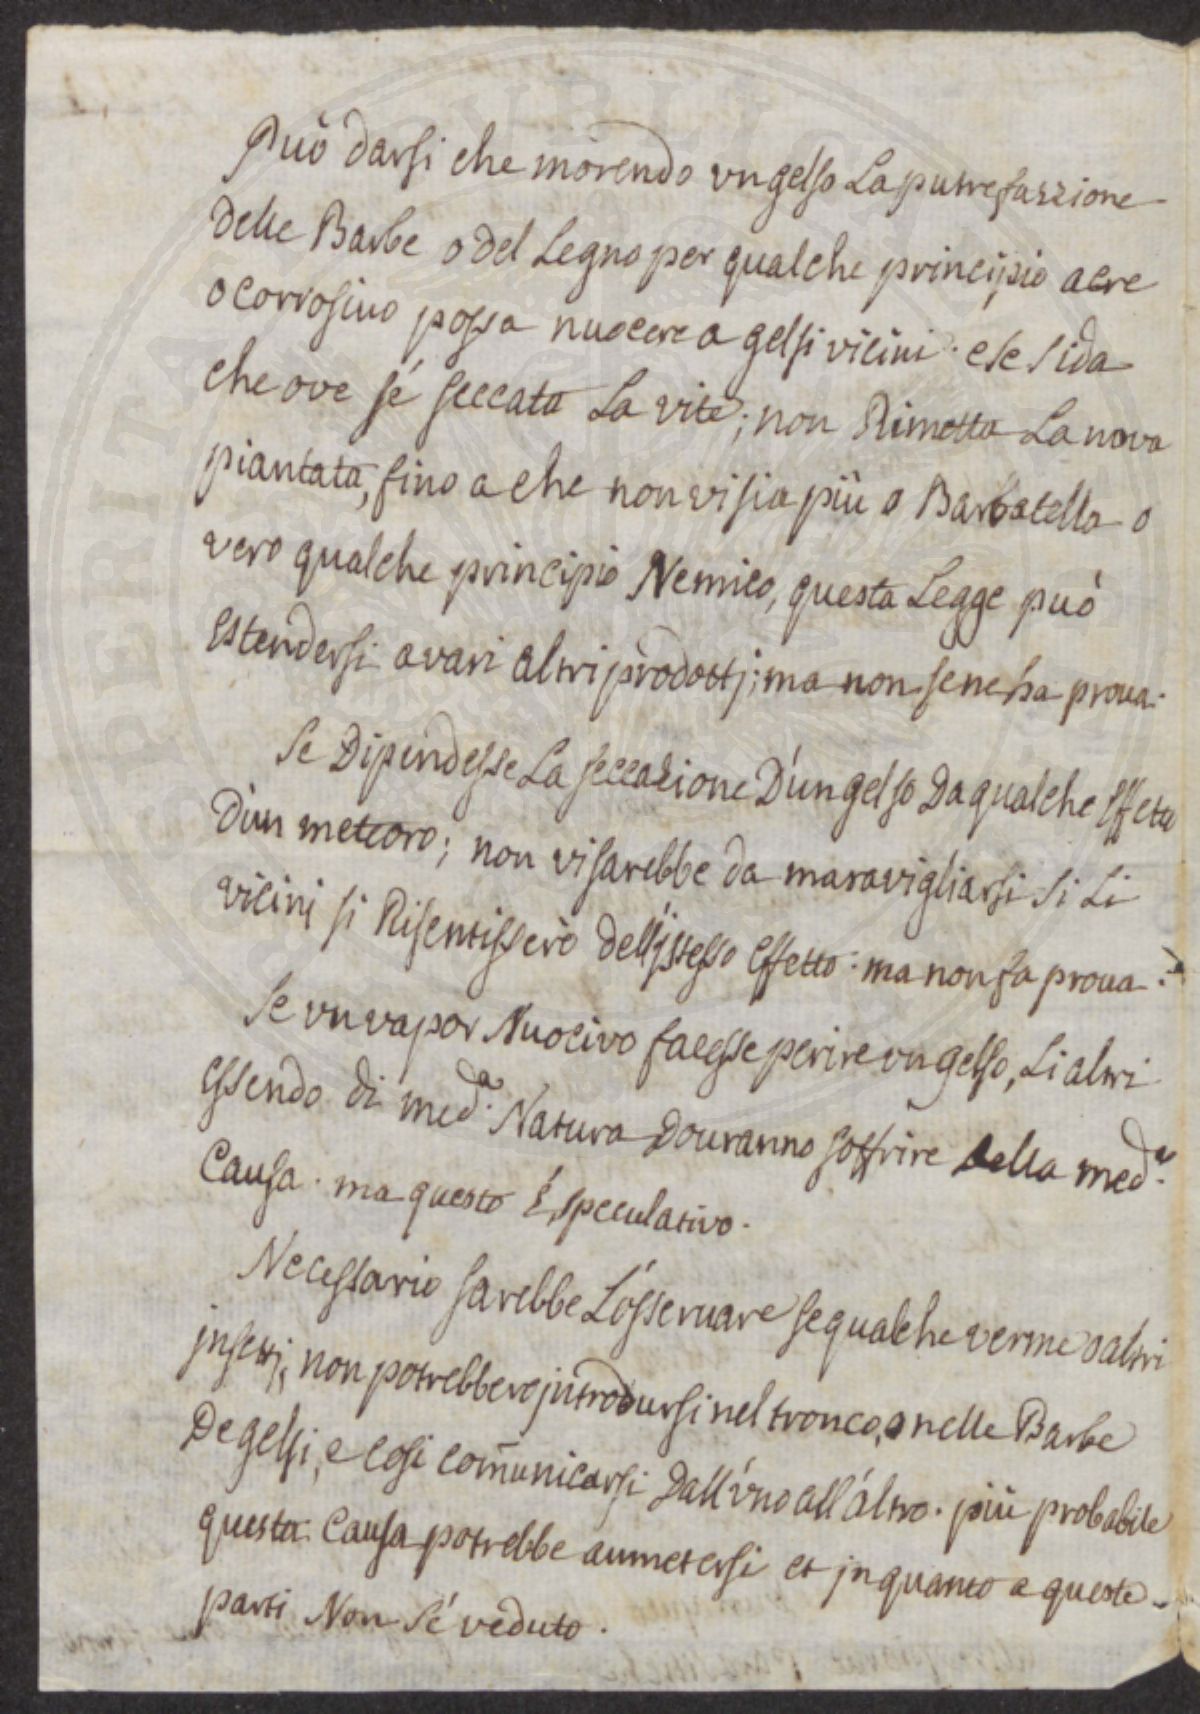 Può darsi che morendo un gelso La putrefazzione
delle Barbe o del Legno per qualche principio acre
o corrosivo possa nuocere a gelsi vicini. e se si da
che ove sé seccata La vite; non Rimetta La nova
piantata, fino a che non vi sia più o Barbatella o
vero qualche principio Nemico, questa Legge può
Estendersi a vari altri prodotti; ma non se ne ha prova.
Se Dipendesse La seccazione D'un gelso Da qualche Effetto
D'un meteoro; non vi sarebbe da maravigliarsi si Li
vicini si Risentissero dell'jstesso Effetto: ma non fa prova.
Se un vapor Nuocivo facesse perire un gelso, Li altri
Essendo di med.a Natura Douranno soffrire della med.a
Causa. ma questo É speculativo.
Necessario sarebbe L'osseruare se qualche verme o altri
jnsetti, non potrebbero jntrodursi nel tronco, o nelle Barbe
De gelsi, e Cosi com̃unicarsi Dall'uno all'altro. più probabile
questa Causa potrebbe aumetersi et jn quanto a queste
parti Non sé veduto.